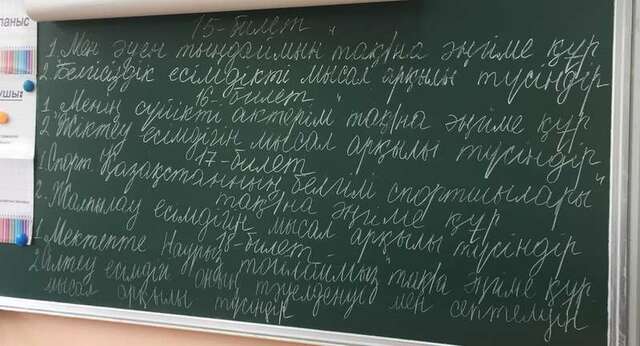 паныс
ушы:
15-билет
1. Мен әуен тыңдаймын" тақ/на әңгіме құр
2. Белгісіздік есімдікті мысал арқылы түсіндір
16-билет
1. Менің сүйікті актерім" тақ/на әңгіме құр
2. Жіктеу есімдігін мысал арқылы түсіндір
17-билет
1. Спорт. Қазақстанның белгілі спортшылары"
тақ/на әңгіме құр
2. Жалпылау есімдігін мысал арқылы түсіндір
18-билет
1. Мектепте Наурыз тойлаймыз" тақ/на әңгіме құр.
2. Сілтеу есімдігін оның тәуелденуі мен септелуін
мысал арқылы түсіндір